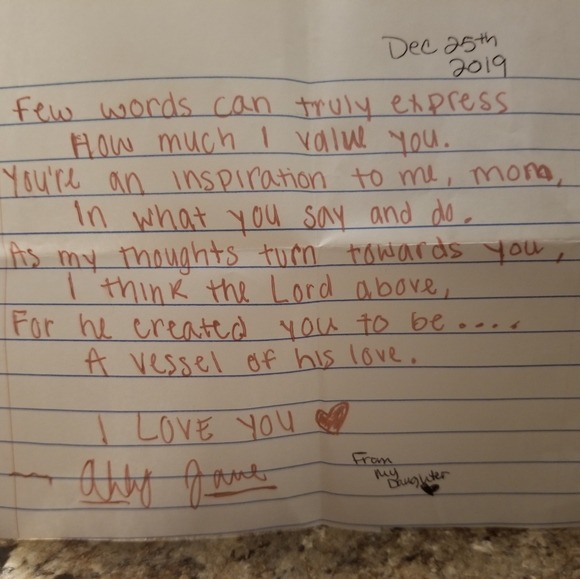 Dec 25th
2019
Few words can truly express
How much I value you.
You're an inspiration to me, mom,
In what you say and do.
As my thoughts turn towards you,
I think the Lord above,
For he created you to be....
A vessel of his love.
I LOVE YOU ♥
— Abby Jane
From
My
Daughter
♥